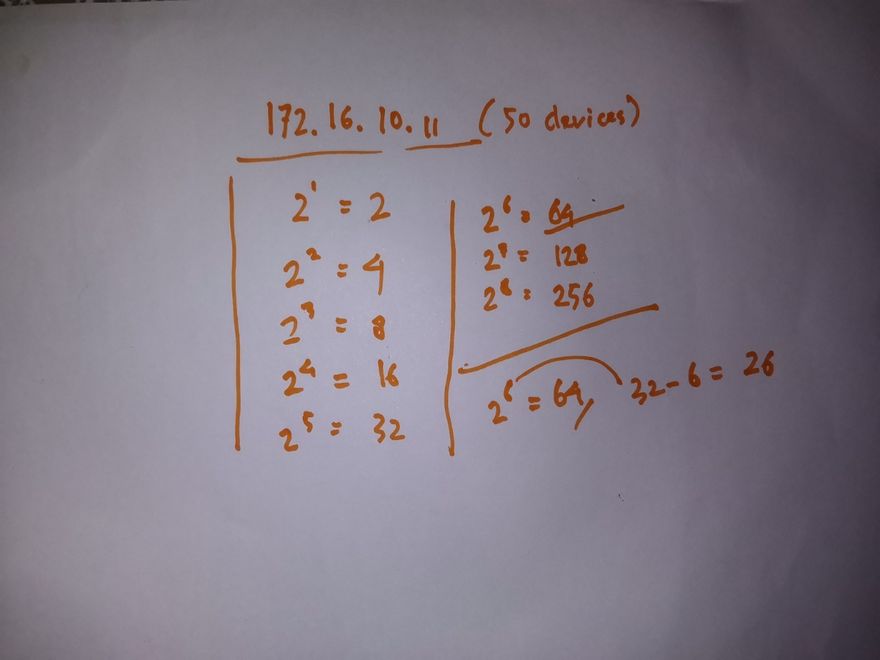 172.16.10.11 (50 devices)
2¹ = 2
2² = 4
2³ = 8
2⁴ = 16
2⁵ = 32
2⁶ = 64
2⁷ = 128
2⁸ = 256
2⁶ = 64, 32-6 = 26